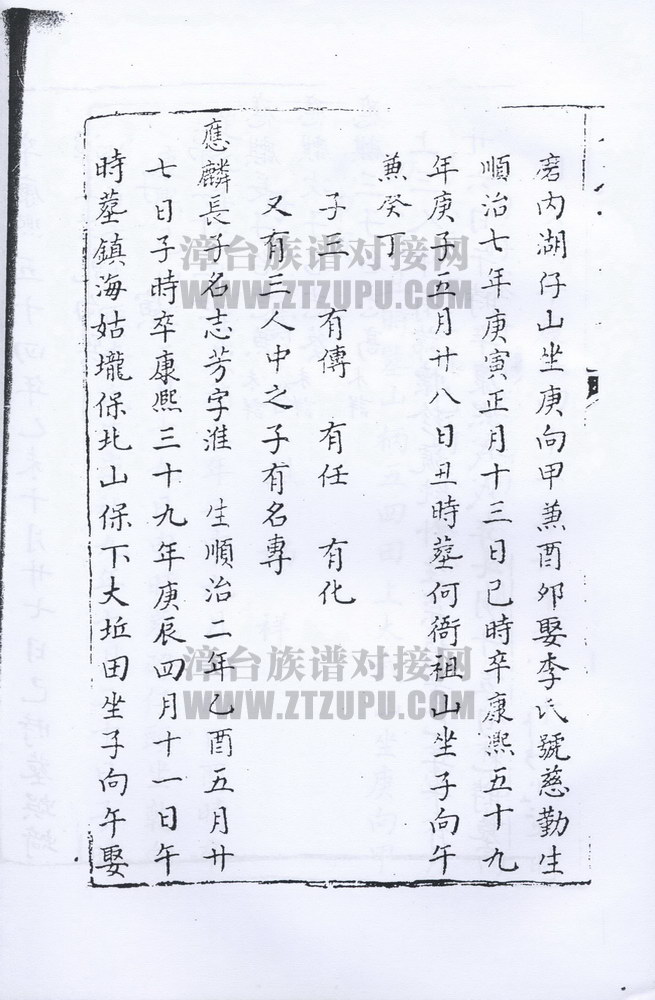 磨内湖仔山坐庚向甲兼酉卯娶李氏號慈勤生
順治七年庚寅正月十三日巳時卒康熙五十九
年庚子五月廿八日丑時墓何衙祖山坐子向午
兼癸丁
子三 有傳 有任 有化
又有三人中之子有名專
應麟長子名志芳字淮 生順治二年乙酉五月廿
七日子時卒康熙三十九年庚辰四月十一日午
時墓鎮海姑壠保北山保下大坵田坐子向午娶
漳台族谱对接网
WWW.ZTZUPU.COM
漳台族谱对接网
WWW.ZTZUPU.COM